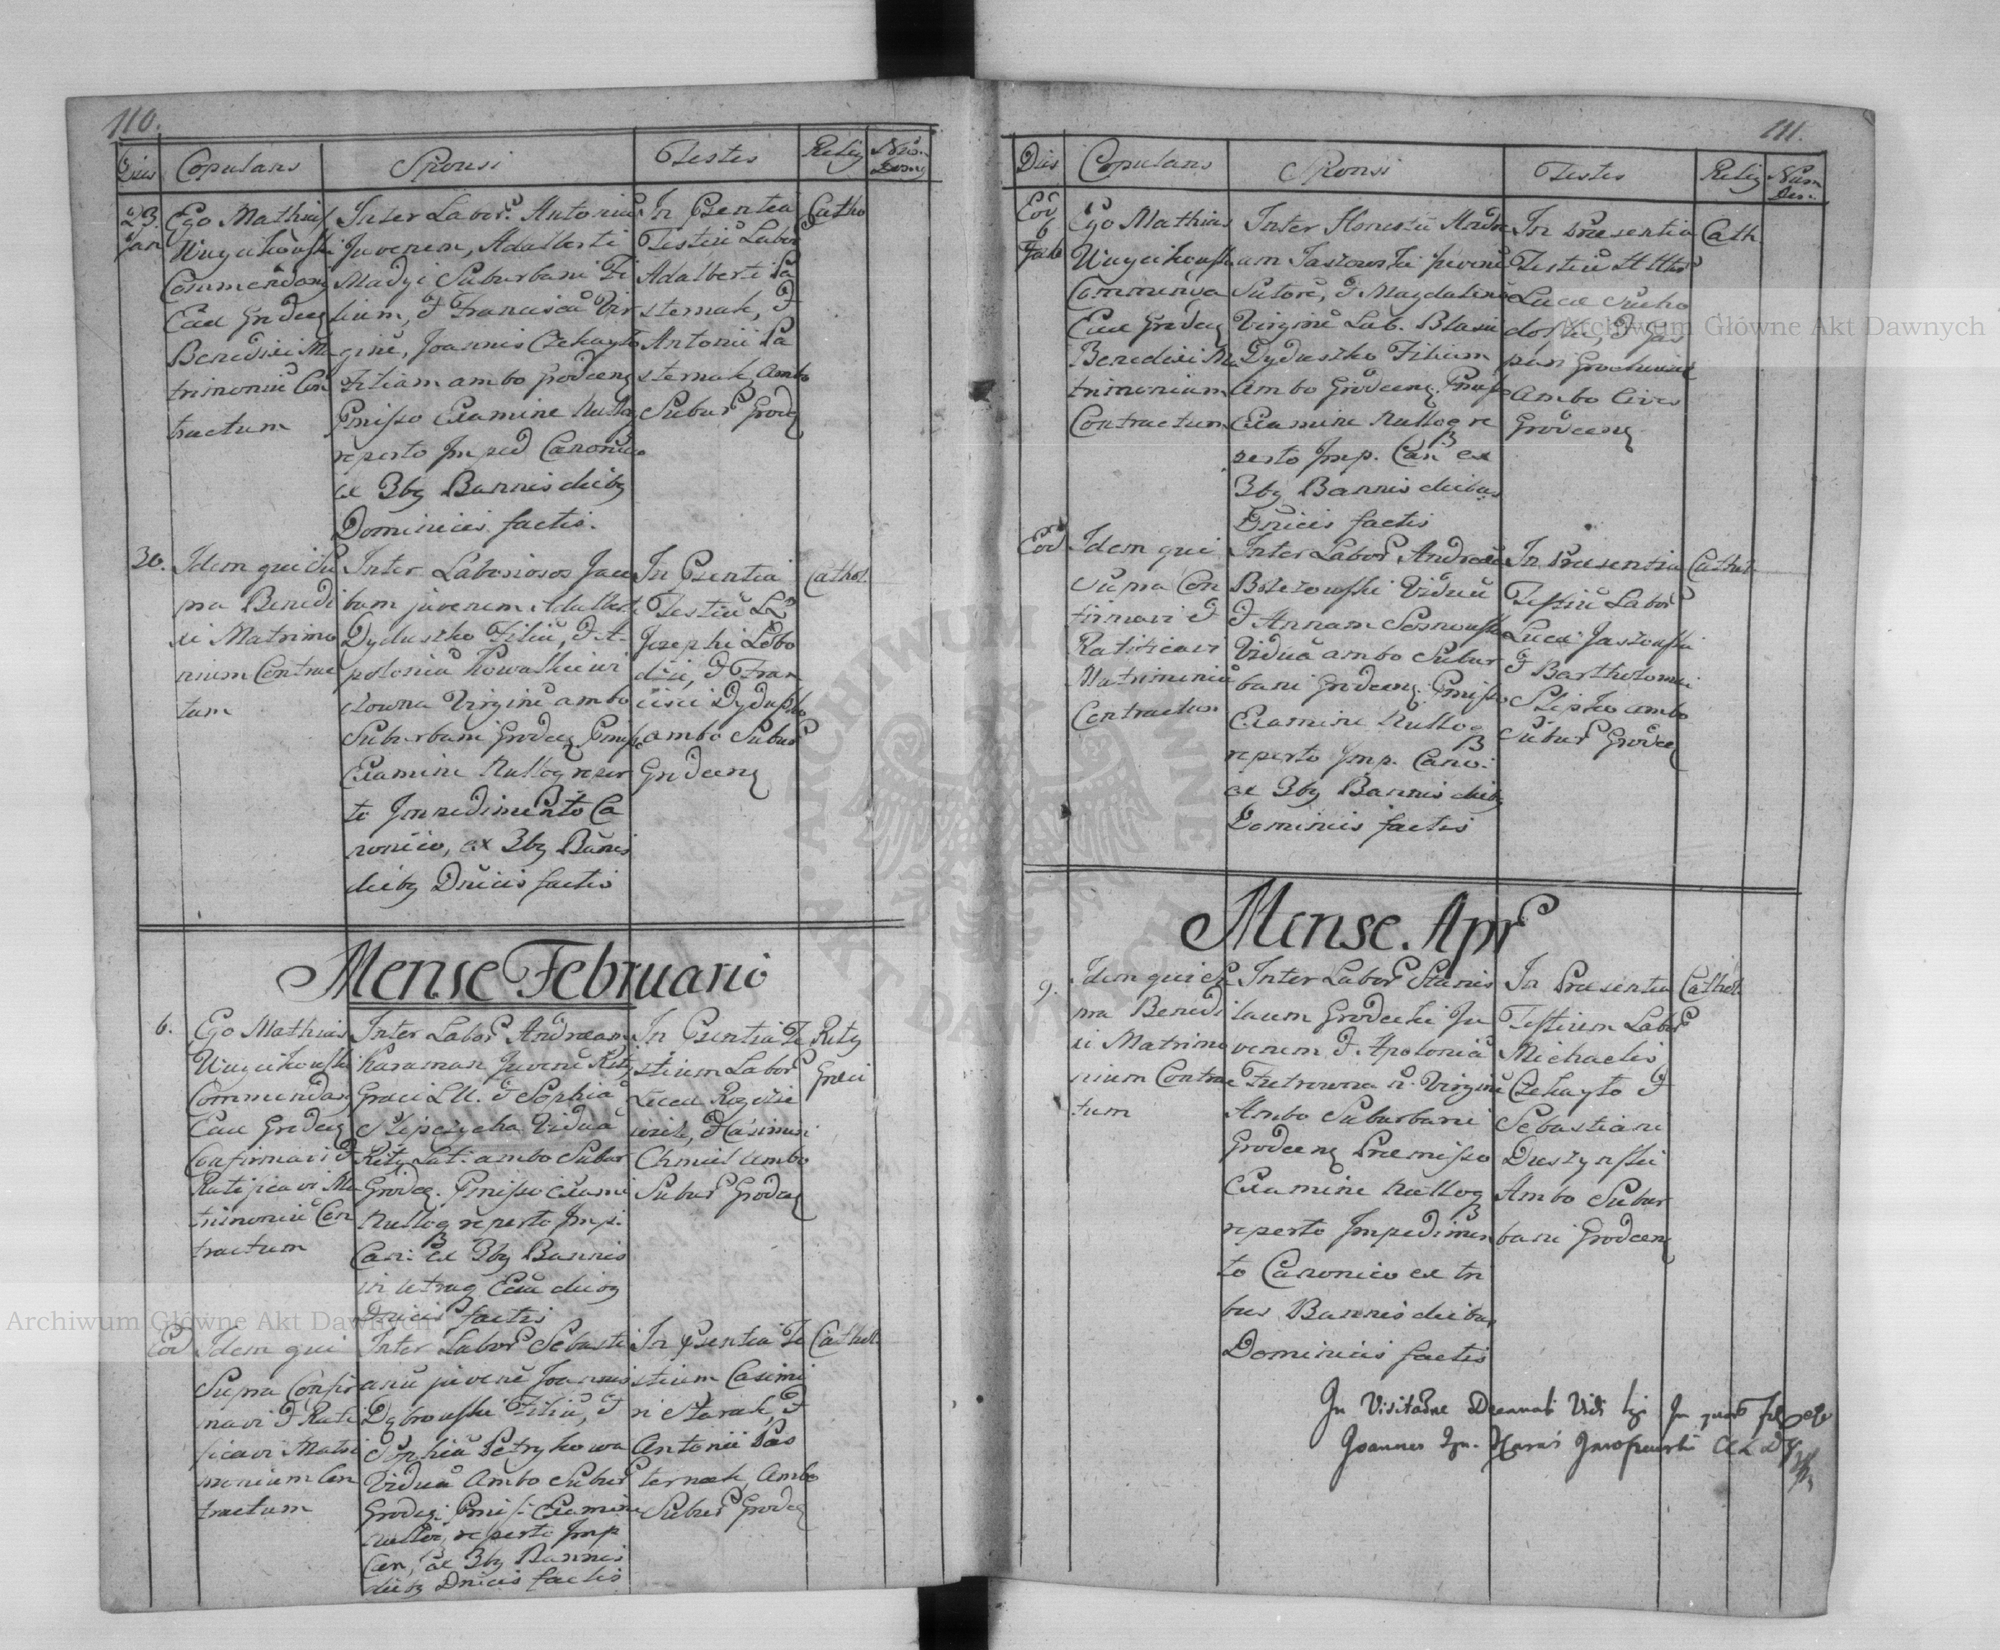 110.
Dies
Copulans
Sponsi
Testes
Relig
Nro. Domus
23. Jan
Ego Mathias
Commendarz
Eccl Grodecz
Benedixi Ma
trimoniũ Con
tractum
Inter Labor. Antoniũ
Juvenem, Adalberti
Madyi Suburbani Fi
lium, & Franciscã Vir
ginẽ, Joannis Czekayło
Filiam ambo Grodecens
Pmisso Examine Nulloq
reperto Imped Canonico
ex 3bq Bannis diebq
Dominicis factis.
In Psentia
Testiũ Labor
Adalberti Pa
sternak, &
Antonii Pa
sternak, Ambo
Subur Grodecz
Catho
30.
Idem qui Su
pra Benedi
xi Matrimo
nium Contrac
tum
Inter Laboriosos Jaco
bum juvenem, Adalberti
Dyduszko Filiũ, & A-
poloniã Kowalkiewi
czowna Virginẽ ambo
Suburbani Grodecz Pmisso
Examine Nulloq reper
to Impedimento Ca
nonico, ex 3bq Banis
diebq Dnicis factis
In Psentia
Testiũ
Josephi
& Fran
cisci Dyduszko
ambo Subur
Grodecens
Cathol.
Mense Februario
6.
Ego Mathias
Commendarz
Eccl Grodecz
Confirmavi &
Ratificavi Ma
trimoniũ Con
tractum
Inter Labor Andream
Karaman Juvenẽ Rity
Graci & Sophiã
Viduã
Rity Lat: ambo Subur
Grodecz. Pmisso Exami
Nulloq reperto Imp.
Can: ex 3bq Bannis
in utraq Eccla diebq
Dnicis factis
In Psentia Te
stium Labor
Lucae
& Casimiri
Chmiel ambo
Subur Grodecz
Rity
Graeci
Eod
Idem qui
Supra Confir
mavi & Rati
ficavi Matri
monium Con
tractum
Inter Labor Sebasti
anũ juvenẽ Joannis
Dąbrowski Filiũ, &
Sophiã Petrykowa
Viduã Ambo Subur
Grodecz: Pmis: Examine
nulloq, reperto Imp
Can, ex 3bq Bannis
diebq Dnicis factis
In Psentia Te
stium Casimi
ri Starak, &
Antonii Pas
ternak, Ambo
Subur Grodecz
Cathol.
111.
Dies
Copulans
Sponsi
Testes
Relig
Num Dom.
Eod 6 Feb
Ego Mathias
Commenda
Eccl Grodecz
Benedixi Ma
trimonium
Contractum
Inter Honestũ Andre
am Jastowski juvenẽ
Sutorẽ, & Magdalenã
Virginẽ Lab. Blasii
Dyduszko Filiam
Ambo Grodecens. Pmisso
Examine Nulloq re
perto Imp. Can ex
3bq Bannis diebus
Dnicis factis
In Praesentia
Testiũ
Lucae
& Gas
pari
Ambo Cives
Grodecens
Cath
Eod
Idem qui
Supra Con
firmavi &
Ratificavi
Matrimoniũ
Contractum
Inter Labor Andream
Viduũ
& Annam Sosnowska
Viduã ambo Subur
bani Grodecens. Pmisso
Examine Nulloq
reperto Imp. Cano:
ex 3bq Bannis diebq
Dominicis factis
In Praesentia
Testiũ Labor
Lucae Jastowski
& Bartholomaei
Slipko ambo
Subur Grodecz
Cathol.
Mense. Apr
9.
Idem qui Su
pra Benedi
xi Matrimo
nium Contrac
tum
Inter Labor Stanis
laum Grodecki Ju
venem & Apoloniã
Virginẽ
Ambo Suburbani
Grodecens Praemisso
Examine Nulloq
reperto Impedimen
to Canonico ex tri
bus Bannis diebus
Dominicis factis
In Praesentia
Testium Labor
Michaelis
Czekayło &
Sebastiani
Duszynski
Ambo Subur
bani Grodcens
Cathol.
In Visitaõne Decanali Vidi
Joannes
Archiwum Główne Akt Dawnych
Archiwum Główne Akt Dawnych
ARCHIWUM GŁÓWNE AKT DAWNYCH